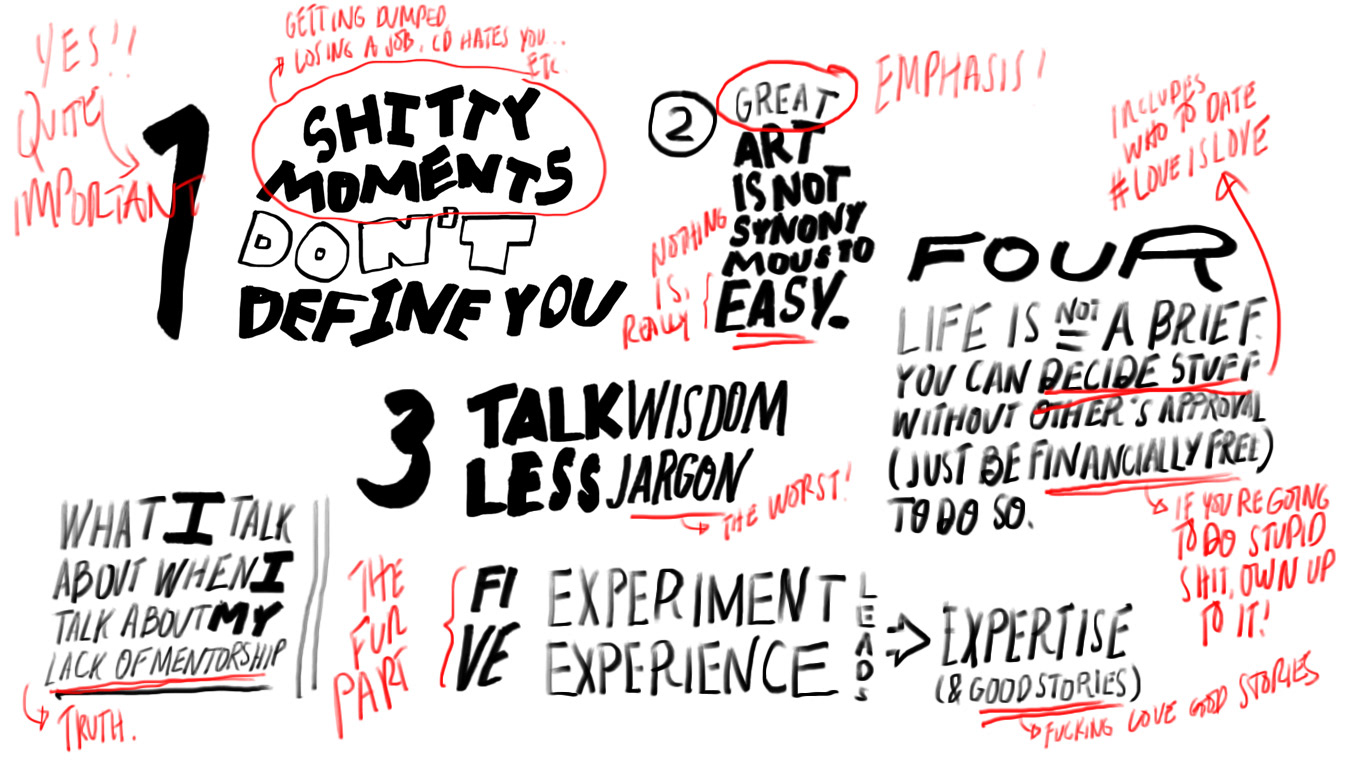 YES!!
QUITE
IMPORTANT
GETTING DUMPED,
LOSING A JOB, CD HATES YOU...
ETC.
1
SHITTY
MOMENTS
DON'T
DEFINE YOU
2
GREAT
ART
IS NOT
SYNONY
MOUS TO
EASY.
EMPHASIS!
NOTHING
IS,
REALLY
INCLUDES
WHO TO DATE
#LOVEISLOVE
FOUR
LIFE IS NOT A BRIEF.
YOU CAN DECIDE STUFF
WITHOUT OTHER'S APPROVAL
(JUST BE FINANCIALLY FREE)
TO DO SO.
IF YOU'RE GOING
TO DO STUPID
SHIT, OWN UP
TO IT!
3
TALK WISDOM
LESS JARGON
THE WORST!
WHAT I TALK
ABOUT WHEN I
TALK ABOUT MY
LACK OF MENTORSHIP
TRUTH.
THE
FUN
PART
FI
VE
EXPERIMENT
EXPERIENCE
LEADS
EXPERTISE
(& GOOD STORIES)
FUCKING LOVE GOOD STORIES